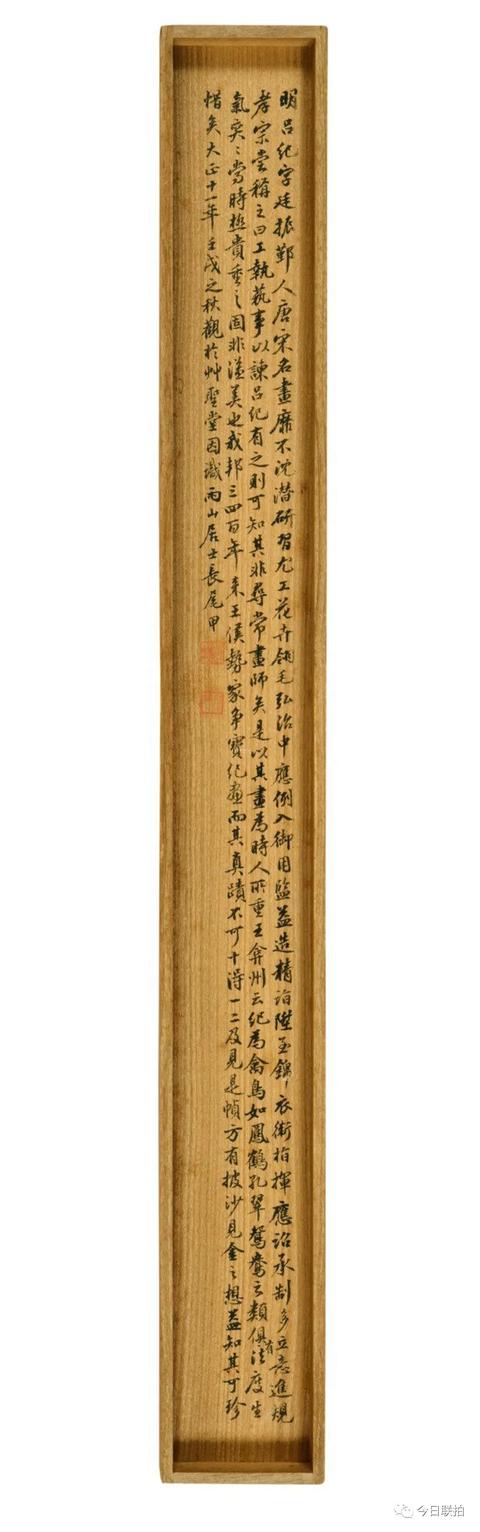 明呂紀字廷振鄞人唐宋名畫靡不沈潛研習尤工花卉翎毛弘治中應例入御用監益造精詣陞至錦〻衣衛指揮應詔承制多立意進規
孝宗嘗稱之曰工執藝事以諫呂紀有之則可知其非尋常畫師矣是以其畫為時人所重王弇州云紀為禽鳥如鳳鶴孔翠鴛鴦云類俱有法度生
氣奕〻當時極貴重之固非溢美也我邦三四百年來王侯勢家爭寶紀畫而其真蹟不可十得一二及見是幀方有披沙見金之想益知其可珍
惜矣大正十一年壬戌之秋觀於艸聖堂因識雨山居士長尾甲
今日联拍